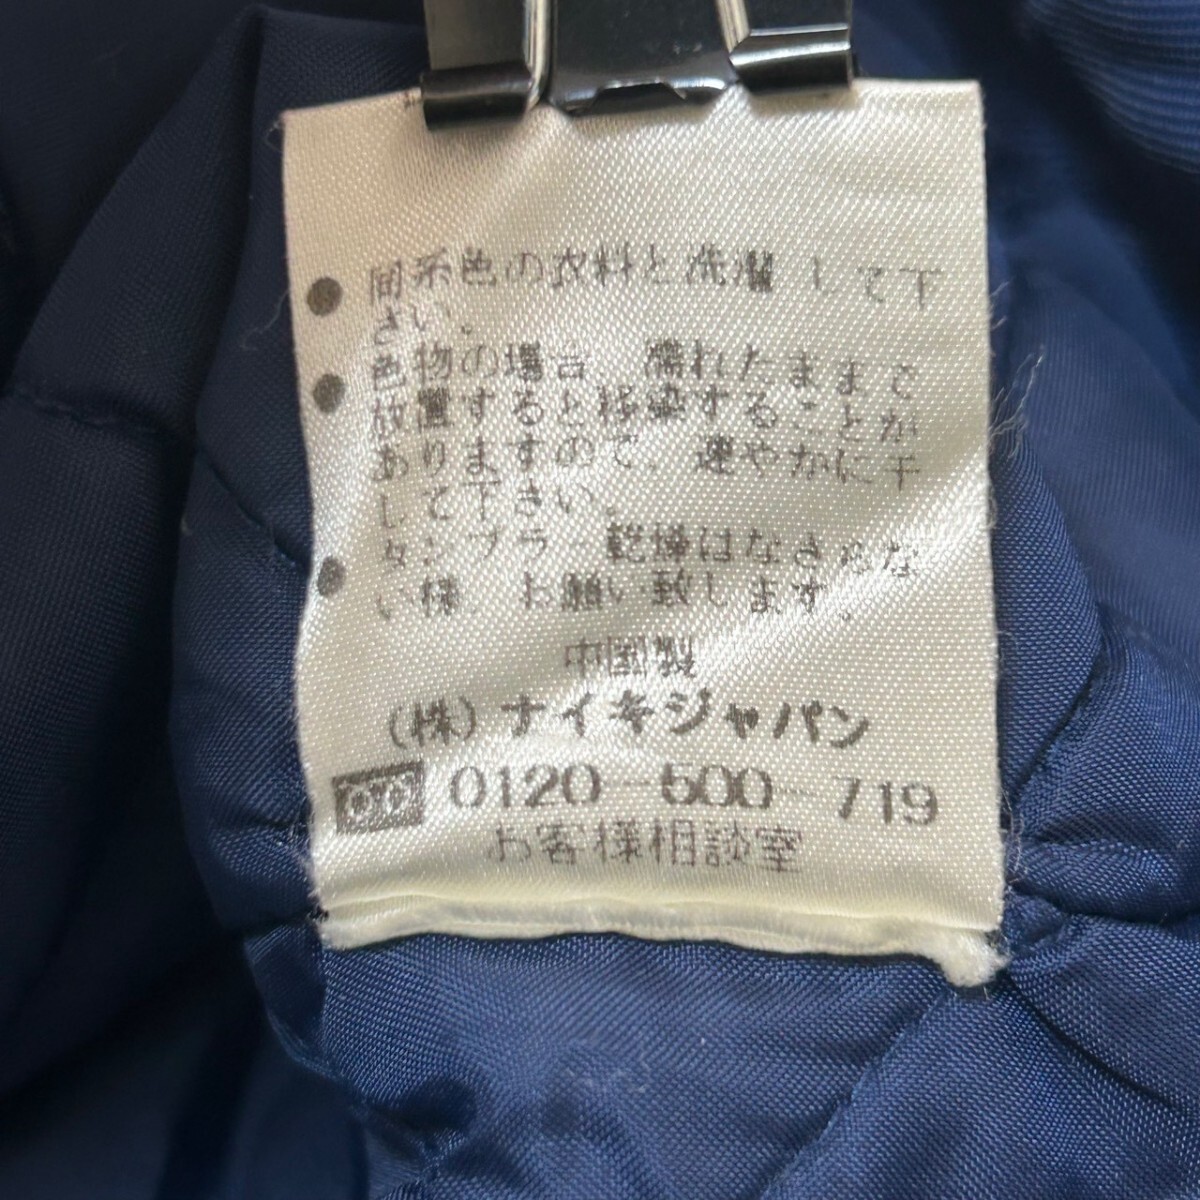 ● 同系色の衣料と洗濯して下
さい。
● 色物の場合、濡れたままで
放置すると移染することが
ありますので、速やかに干
して下さい。
● タンブラー乾燥はなさらな
い様、お願い致します。
中国製
(株)ナイキジャパン
0120-500-719
お客様相談室